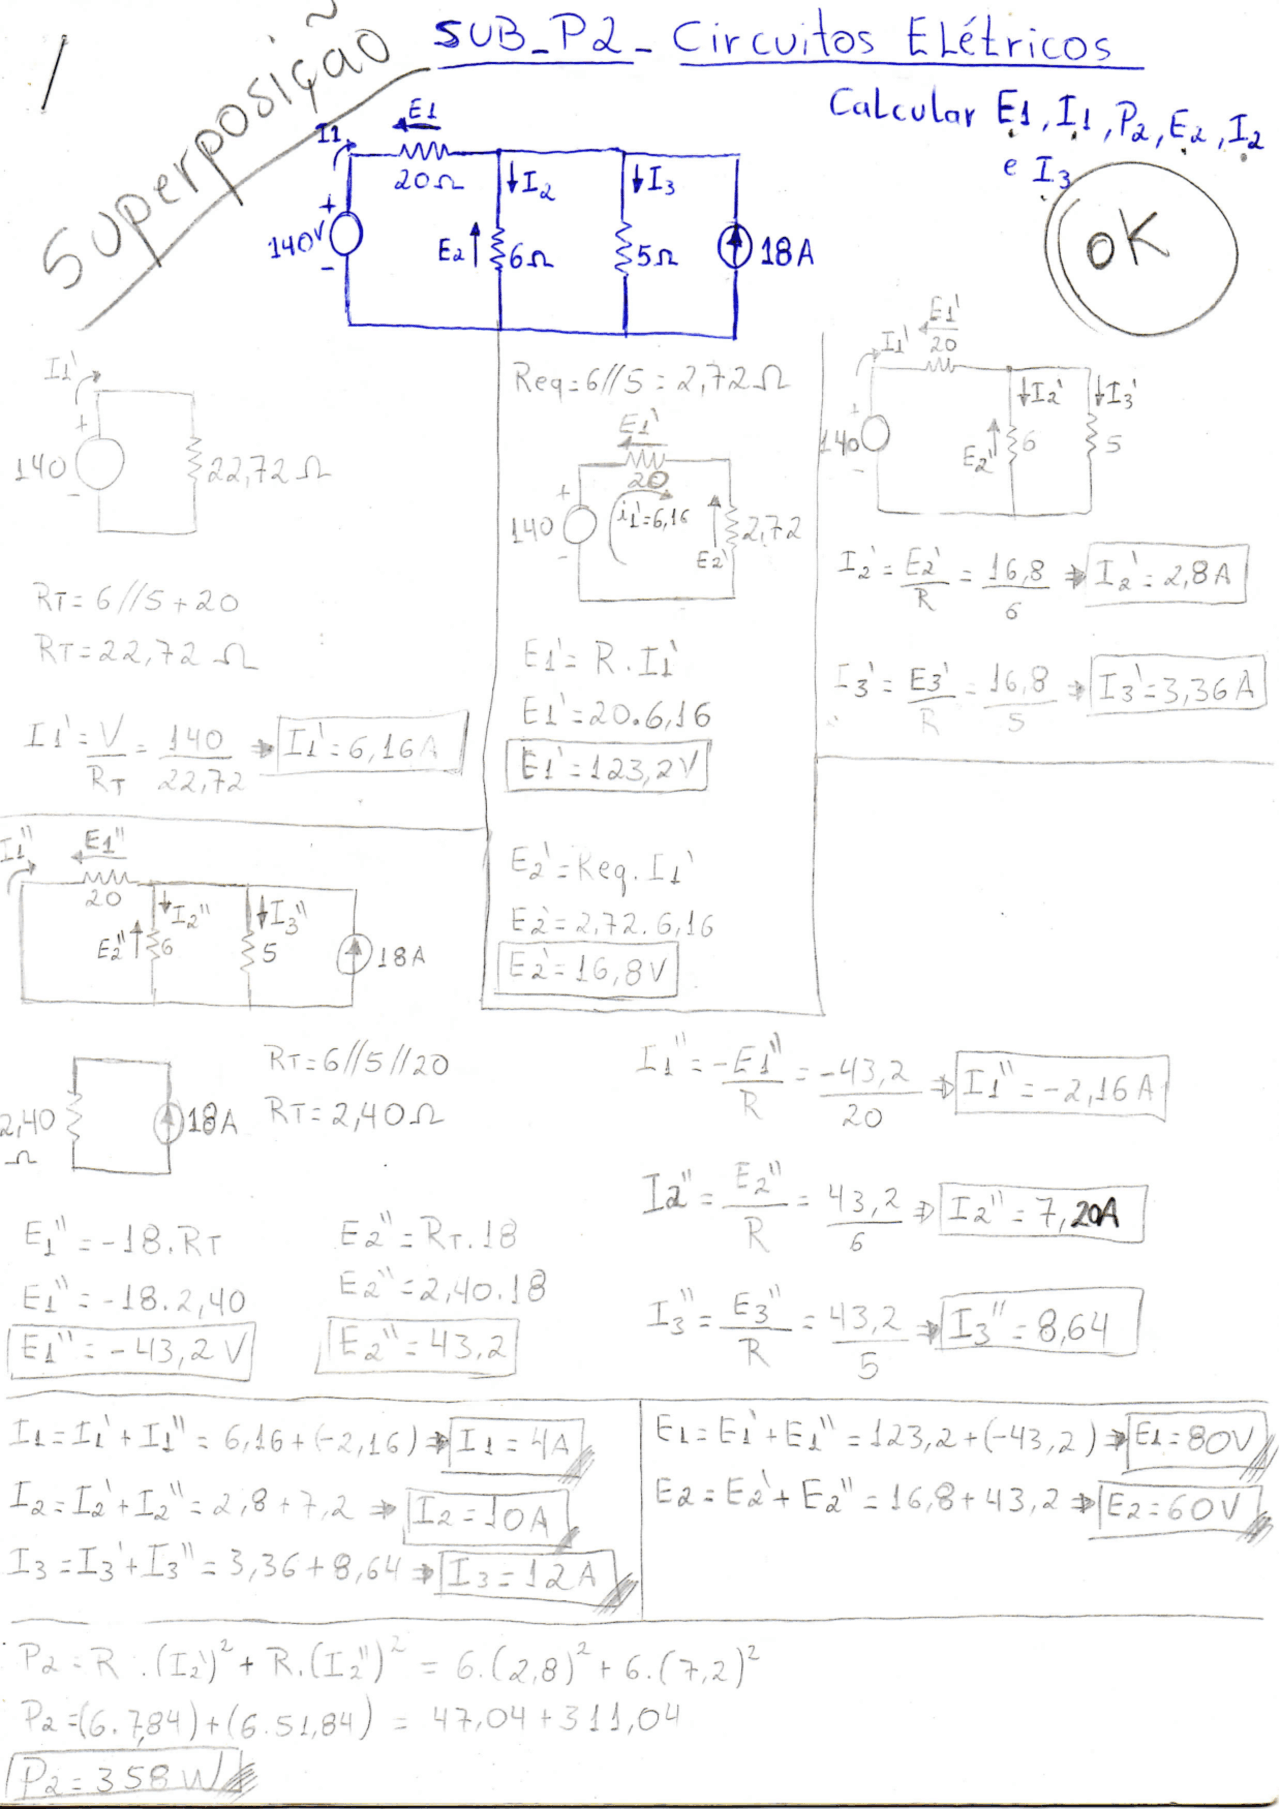 SUB_P2_Circuitos Elétricos
Superposição
Calcular E1, I1, P2, E2, I2
e I3
OK
I1
E1
20Ω
I2
I3
+
140V
-
E2
6Ω
5Ω
18A
I1'
+
140
-
22,72Ω
RT = 6//5 + 20
RT = 22,72 Ω
I1' = V/RT = 140/22,72 ⇒ I1' = 6,16A
Req = 6//5 = 2,72Ω
E1'
20
+
140
-
i1' = 6,16
E2'
2,72
E1' = R . I1'
E1' = 20.6,16
E1' = 123,2V
E2' = Req. I1'
E2' = 2,72. 6,16
E2' = 16,8V
I1'
E1'
20
I2'
I3'
+
140
-
E2'
6
5
I2' = E2'/R = 16,8/6 ⇒ I2' = 2,8A
I3' = E3'/R = 16,8/5 ⇒ I3' = 3,36A
I1''
E1''
20
I2''
I3''
E2''
6
5
18A
2,40
Ω
18A
RT = 6//5//20
RT = 2,40Ω
E1'' = -18.RT
E1'' = -18.2,40
E1'' = -43,2V
E2'' = RT.18
E2'' = 2,40.18
E2'' = 43,2
I1'' = -E1''/R = -43,2/20 ⇒ I1'' = -2,16A
I2'' = E2''/R = 43,2/6 ⇒ I2'' = 7,20A
I3'' = E3''/R = 43,2/5 ⇒ I3'' = 8,64
I1 = I1' + I1'' = 6,16 + (-2,16) ⇒ I1 = 4A
I2 = I2' + I2'' = 2,8 + 7,2 ⇒ I2 = 10A
I3 = I3' + I3'' = 3,36 + 8,64 ⇒ I3 = 12A
E1 = E1' + E1'' = 123,2 + (-43,2) ⇒ E1 = 80V
E2 = E2' + E2'' = 16,8 + 43,2 ⇒ E2 = 60V
P2 = R .(I2')² + R.(I2'')² = 6.(2,8)² + 6.(7,2)²
P2 = (6.7,84) + (6.51,84) = 47,04 + 311,04
P2 = 358W